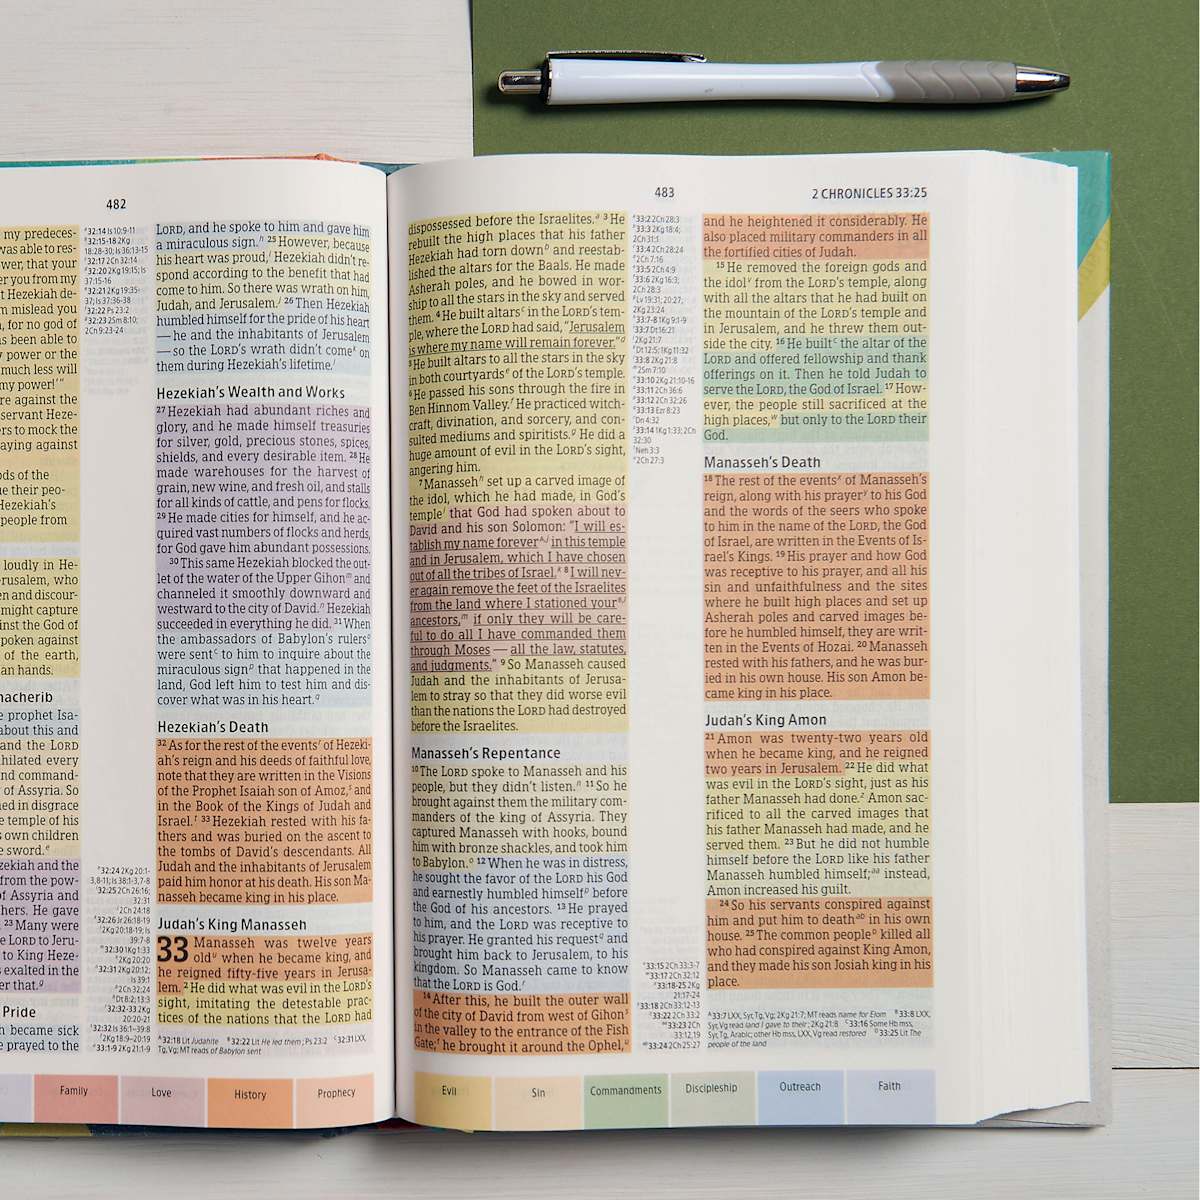 482
my predeces-
was able to res-
ower, that your
er you from my
t Hezekiah de-
m mislead you
, for no god of
as been able to
y power or the
much less will
my power!’”
re against the
servant Heze-
ers to mock the
aying against
ods of the
ue their peo-
Hezekiah's
people from
loudly in He-
rusalem, who
en and discour-
might capture
inst the God of
poken against
of the earth,
an hands.
nacherib
e prophet Isa-
about this and
and the LORD
hilated every
nd command-
of Assyria. So
ed in disgrace
e temple of his
s own children
e sword.e
zekiah and the
from the pow-
of Assyria and
hers. He gave
23 Many were
e LORD to Jeru-
to King Heze-
s exalted in the
er that.g
Pride
h became sick
e prayed to the
32:14 Is 10:9-11
32:15-18 2Kg
18:28-30; Is 36:13-15
32:17 2Ch 32:14
32:20 2Kg 19:15; Is
37:15-16
32:21 2Kg 19:35-
37; Is 37:36-38
32:22 Ps 23:2
32:23 2Sm 8:10;
2Ch 9:23-24
32:24 2Kg 20:1-
3,8-11; Is 38:1-3,7-8
32:25 2Ch 26:16;
32:31
2Ch 24:18
32:26 Jr 26:18-19
2Kg 20:18-19; Is
39:7-8
32:30 1Kg 1:33
2Kg 20:20
32:31 2Kg 20:12;
Is 39:1
2Ch 32:24
Dt 8:2; 13:3
32:32-33 2Kg
20:20-21
32:32 Is 36:1–39:8
2Kg 18:9–20:19
33:1-9 2Kg 21:1-9
LORD, and he spoke to him and gave him
a miraculous sign.h 25 However, because
his heart was proud,i Hezekiah didn't re-
spond according to the benefit that had
come to him. So there was wrath on him,
Judah, and Jerusalem.j 26 Then Hezekiah
humbled himself for the pride of his heart
— he and the inhabitants of Jerusalem
— so the LORD's wrath didn't comek on
them during Hezekiah's lifetime.l
Hezekiah's Wealth and Works
27 Hezekiah had abundant riches and
glory, and he made himself treasuries
for silver, gold, precious stones, spices,
shields, and every desirable item. 28 He
made warehouses for the harvest of
grain, new wine, and fresh oil, and stalls
for all kinds of cattle, and pens for flocks.
29 He made cities for himself, and he ac-
quired vast numbers of flocks and herds,
for God gave him abundant possessions.
30 This same Hezekiah blocked the out-
let of the water of the Upper Gihonm and
channeled it smoothly downward and
westward to the city of David.n Hezekiah
succeeded in everything he did. 31 When
the ambassadors of Babylon's rulerso
were sentc to him to inquire about the
miraculous signp that happened in the
land, God left him to test him and dis-
cover what was in his heart.q
Hezekiah's Death
32 As for the rest of the eventsr of Hezeki-
ah's reign and his deeds of faithful love,
note that they are written in the Visions
of the Prophet Isaiah son of Amoz,s and
in the Book of the Kings of Judah and
Israel.t 33 Hezekiah rested with his fa-
thers and was buried on the ascent to
the tombs of David's descendants. All
Judah and the inhabitants of Jerusalem
paid him honor at his death. His son Ma-
nasseh became king in his place.
Judah's King Manasseh
33 Manasseh was twelve years
oldu when he became king, and
he reigned fifty-five years in Jerusa-
lem. 2 He did what was evil in the LORD's
sight, imitating the detestable prac-
tices of the nations that the LORD had
32:18 Lit Judahite 32:22 Lit He led them; Ps 23:2 32:31 LXX,
Tg, Vg; MT reads of Babylon sent
Family
Love
History
Prophecy
483
2 CHRONICLES 33:25
dispossessed before the Israelites.a 3 He
rebuilt the high places that his father
Hezekiah had torn downb and reestab-
lished the altars for the Baals. He made
Asherah poles, and he bowed in wor-
ship to all the stars in the sky and served
them. 4 He built altarsc in the LORD's tem-
ple, where the LORD had said, “Jerusalem
is where my name will remain forever.”d
5 He built altars to all the stars in the sky
in both courtyardse of the LORD's temple.
6 He passed his sons through the fire in
Ben Hinnom Valley.f He practiced witch-
craft, divination, and sorcery, and con-
sulted mediums and spiritists.g He did a
huge amount of evil in the LORD's sight,
angering him.
7 Manassehh set up a carved image of
the idol, which he had made, in God's
templei that God had spoken about to
David and his son Solomon: “I will es-
tablish my name foreverA,j in this temple
and in Jerusalem, which I have chosen
out of all the tribes of Israel.k 8 I will nev-
er again remove the feet of the Israelites
from the land where I stationed yourB,l
ancestors,m if only they will be care-
ful to do all I have commanded them
through Moses — all the law, statutes,
and judgments.” 9 So Manasseh caused
Judah and the inhabitants of Jerusa-
lem to stray so that they did worse evil
than the nations the LORD had destroyed
before the Israelites.
Manasseh's Repentance
10 The LORD spoke to Manasseh and his
people, but they didn't listen.n 11 So he
brought against them the military com-
manders of the king of Assyria. They
captured Manasseh with hooks, bound
him with bronze shackles, and took him
to Babylon.o 12 When he was in distress,
he sought the favor of the LORD his God
and earnestly humbled himselfp before
the God of his ancestors. 13 He prayed
to him, and the LORD was receptive to
his prayer. He granted his requestq and
brought him back to Jerusalem, to his
kingdom. So Manasseh came to know
that the LORD is God.r
14 After this, he built the outer wall
of the city of David from west of Gihons
in the valley to the entrance of the Fish
Gate;t he brought it around the Ophel,u
33:2 2Ch 28:3
33:3 2Kg 18:4;
2Ch 31:1
33:4 2Ch 28:24
2Ch 7:16
33:5 2Ch 4:9
33:6 2Kg 16:3;
2Ch 28:3
Lv 19:31; 20:27;
2Kg 23:24
33:7-8 1Kg 9:1-9
33:7 Dt 16:21
2Kg 21:7
Dt 12:5; 1Kg 11:32
33:8 2Kg 21:8
2Sm 7:10
33:10 2Kg 21:10-16
33:11 2Ch 36:6
33:12 2Ch 32:26
33:13 Ezr 8:23
Dn 4:32
33:14 1Kg 1:33; 2Ch
32:30
Neh 3:3
2Ch 27:3
33:15 2Ch 33:3-7
33:17 2Ch 32:12
33:18-25 2Kg
21:17-24
33:18 2Ch 33:12-13
33:22 2Ch 33:2
33:23 2Ch
33:12,19
33:24 2Ch 25:27
and he heightened it considerably. He
also placed military commanders in all
the fortified cities of Judah.
15 He removed the foreign gods and
the idolv from the LORD's temple, along
with all the altars that he had built on
the mountain of the LORD's temple and
in Jerusalem, and he threw them out-
side the city. 16 He builtC the altar of the
LORD and offered fellowship and thank
offerings on it. Then he told Judah to
serve the LORD, the God of Israel. 17 How-
ever, the people still sacrificed at the
high places,w but only to the LORD their
God.
Manasseh's Death
18 The rest of the eventsx of Manasseh's
reign, along with his prayery to his God
and the words of the seers who spoke
to him in the name of the LORD, the God
of Israel, are written in the Events of Is-
rael's Kings. 19 His prayer and how God
was receptive to his prayer, and all his
sin and unfaithfulness and the sites
where he built high places and set up
Asherah poles and carved images be-
fore he humbled himself, they are writ-
ten in the Events of Hozai. 20 Manasseh
rested with his fathers, and he was bur-
ied in his own house. His son Amon be-
came king in his place.
Judah's King Amon
21 Amon was twenty-two years old
when he became king, and he reigned
two years in Jerusalem. 22 He did what
was evil in the LORD's sight, just as his
father Manasseh had done.z Amon sac-
rificed to all the carved images that
his father Manasseh had made, and he
served them. 23 But he did not humble
himself before the LORD like his father
Manasseh humbled himself;aa instead,
Amon increased his guilt.
24 So his servants conspired against
him and put him to deathab in his own
house. 25 The common peopleD killed all
who had conspired against King Amon,
and they made his son Josiah king in his
place.
33:7 LXX, Syr, Tg, Vg; 2Kg 21:7; MT reads name for Elom 33:8 LXX,
Syr, Vg read land I gave to their; 2Kg 21:8 33:16 Some Hb mss,
Syr, Tg, Arabic; other Hb mss, LXX, Vg read restored 33:25 Lit The
people of the land
Evil
Sin
Commandments
Discipleship
Outreach
Faith